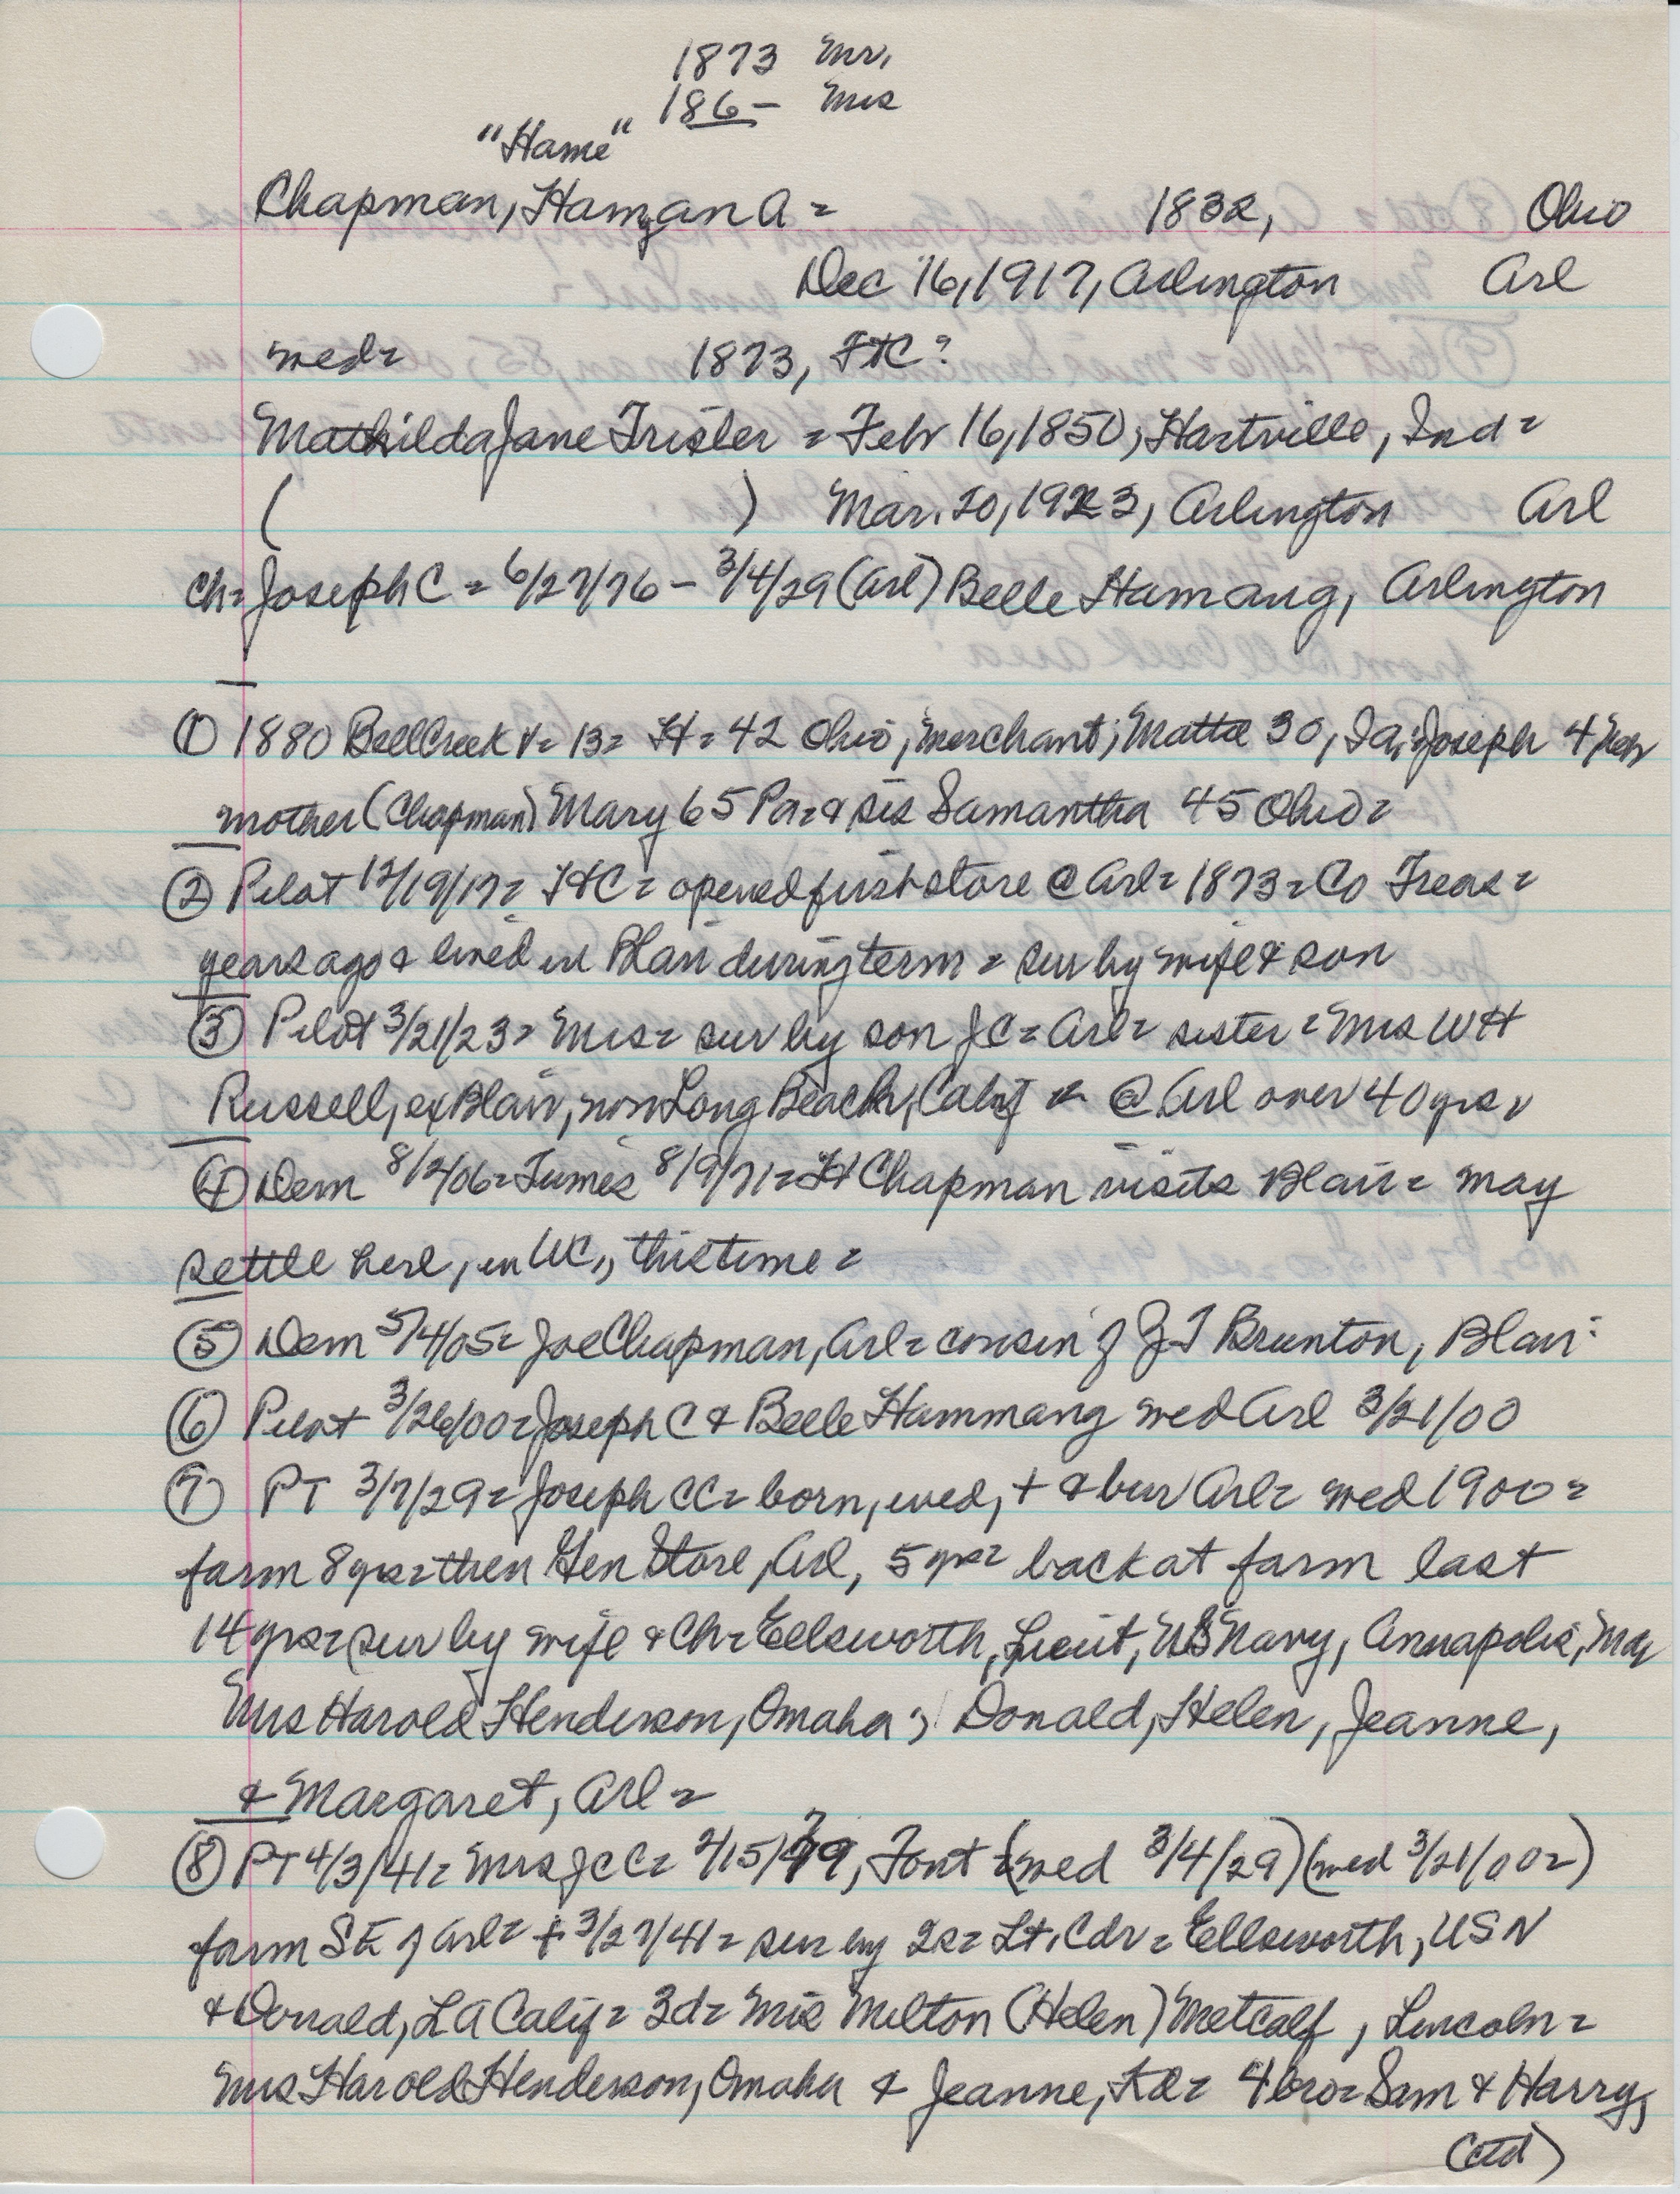 1873 Mr,
186- Mrs
"Hame"
Chapman, Hamzan A = 1832, Ohio
Dec 16, 1917, Arlington Arl
wed = 1873, FtC?
Mathilda Jane Trisler = Feb 16, 1850, Hartville, Ind =
( ) Mar. 20, 1923, Arlington Arl
ch = Joseph C = 6/27/76 - 3/4/29 (Arl) Belle Hamang, Arlington
① 1880 Bell Creek V = 13 = H = 42 Ohio; merchant; Matta 30, Ia; Joseph 4 Neb
mother (Chapman) Mary 65 Pa = & sis Samantha 45 Ohio =
② Pilot 12/19/17 = H C = opened first store @ Arl = 1873 = Co Treas =
years ago & lived in Blair during term = sur by wife & son
③ Pilot 3/21/23 = Mrs = sur by son J C = Arl = sister = Mrs W H
Russell, ex Blair, now Long Beach, Calif @ Arl over 40 yrs
④ Dem 8/2/06 = Times 8/9/71 = H Chapman visits Blair = may
settle here, in WC, this time =
⑤ Dem 5/4/05 = Joe Chapman, Arl = cousin of J T Brunton, Blair
⑥ Pilot 3/26/00 = Joseph C & Belle Hammang wed Arl 3/21/00
⑦ PT 3/7/29 = Joseph CC = born, wed, + & bur Arl = wed 1900 =
farm 8 yrs = then Gen Store, Arl, 5 yrs = back at farm last
14 yrs = sur by wife & Ch = Ellsworth, Lieut, US Navy, Annapolis, Md,
Mrs Harold Henderson, Omaha; Donald, Helen, Jeanne,
& Margaret, Arl =
⑧ PT 4/3/41 = Mrs J C C = 2/15/79, Font = (wed 3/4/29) (wed 3/21/00 =)
farm SE of Arl = + 3/27/41 = sur by 2s = Lt. Cdr = Ellsworth, USN
& Donald, LA Calif = 3d = Mrs Milton (Helen) Metcalf, Lincoln =
Mrs Harold Henderson, Omaha & Jeanne, = 4 bro = Sam & Harry,
(ctd)